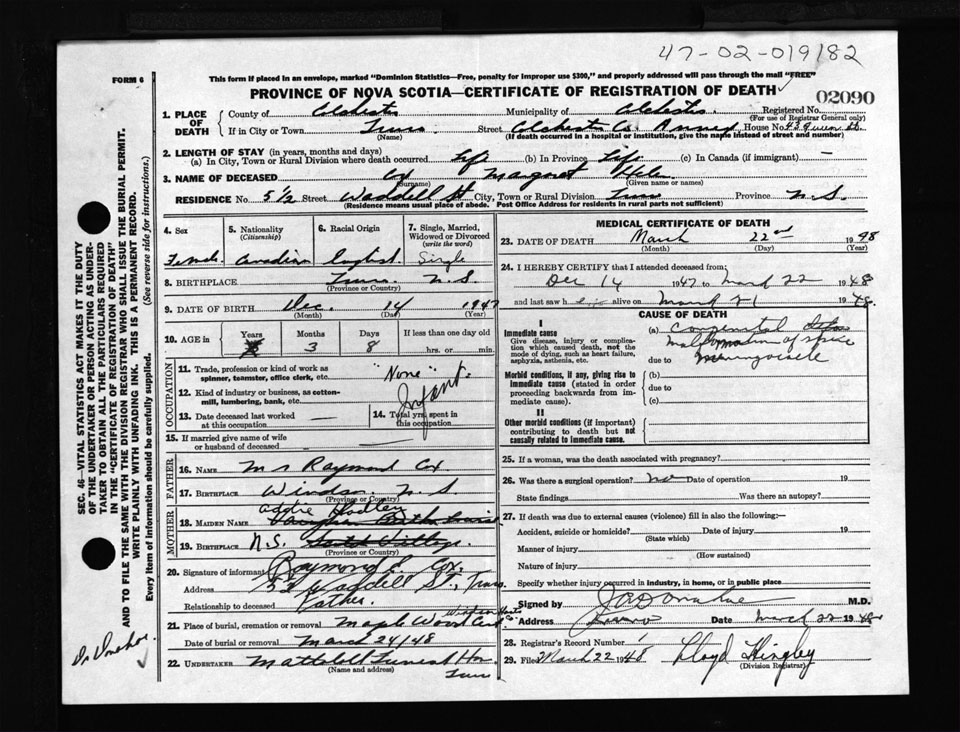 47-02-019182
FORM 6
This form if placed in an envelope, marked "Dominion Statistics—Free, penalty for improper use $300," and properly addressed will pass through the mail "FREE"
PROVINCE OF NOVA SCOTIA—CERTIFICATE OF REGISTRATION OF DEATH
02090
1. PLACE OF DEATH
County of Colchester Municipality of Colchester Registered No.
(For use of Registrar General only)
If in City or Town Truro Street Colchester Co. Annex House No. 43 Queen St.
(Name) (If death occurred in a hospital or institution, give the name instead of street and number)
2. LENGTH OF STAY (in years, months and days)
(a) In City, Town or Rural Division where death occurred Life (b) In Province Life (c) In Canada (if immigrant) —
3. NAME OF DECEASED Cox Margaret Helen
(Surname) (Given name or names)
RESIDENCE No. 5 1/2 Street Waddell St City, Town or Rural Division Truro Province N.S.
(Residence means usual place of abode. Post Office Address for residents in rural parts not sufficient)
4. Sex
5. Nationality (Citizenship)
6. Racial Origin
7. Single, Married, Widowed or Divorced (write the word)
Female Canadian English Single
8. BIRTHPLACE Truro N.S.
(Province or Country)
9. DATE OF BIRTH Dec. 14 1947
(Month) (Day) (Year)
10. AGE in
Years Months Days If less than one day old
3 8 hrs. or min.
OCCUPATION
11. Trade, profession or kind of work as spinner, teamster, office clerk, etc. "None"
12. Kind of industry or business, as cotton-mill, lumbering, bank, etc. Infant
13. Date deceased last worked at this occupation —
14. Total yrs. spent in this occupation
15. If married give name of wife or husband of deceased —
FATHER
16. NAME Mr Raymond Cox
17. BIRTHPLACE Windsor N.S.
(Province or Country)
MOTHER
18. MAIDEN NAME Addie Hadley
19. BIRTHPLACE N.S.
(Province or Country)
20. Signature of informant Raymond L Cox.
Address Waddell St., Truro
Relationship to deceased Father.
21. Place of burial, cremation or removal Maple Wood Cem
Date of burial or removal March 24/48
22. UNDERTAKER Funeral Home
(Name and address)
Truro
MEDICAL CERTIFICATE OF DEATH
23. DATE OF DEATH March 22nd 1948
(Month) (Day) (Year)
24. I HEREBY CERTIFY that I attended deceased from:
Dec 14 1947 to March 22 1948
and last saw her alive on March 21 1948
CAUSE OF DEATH
I
Immediate cause
Give disease, injury or complication which caused death, not the mode of dying, such as heart failure, asphyxia, asthenia, etc.
(a) congenital
malformation of spine
due to meningocele
Morbid conditions, if any, giving rise to immediate cause (stated in order proceeding backwards from immediate cause).
(b)
due to
(c)
II
Other morbid conditions (if important) contributing to death but not causally related to immediate cause.
25. If a woman, was the death associated with pregnancy?
26. Was there a surgical operation? No Date of operation 19
State findings Was there an autopsy?
27. If death was due to external causes (violence) fill in also the following:—
Accident, suicide or homicide? Date of injury 19
(State which)
Manner of injury
(How sustained)
Nature of injury
Specify whether injury occurred in industry, in home, or in public place
Signed by J A Donahoe M.D.
Address Truro Date March 22 1948
28. Registrar's Record Number 1
29. Filed March 22 1948 Lloyd Hingley
(Division Registrar)
SEC. 46—VITAL STATISTICS ACT MAKES IT THE DUTY
OF THE UNDERTAKER OR PERSON ACTING AS UNDER-
TAKER TO OBTAIN ALL THE PARTICULARS REQUIRED
IN THE "CERTIFICATE OF REGISTRATION OF DEATH"
AND TO FILE THE SAME WITH THE DIVISION REGISTRAR WHO SHALL ISSUE THE BURIAL PERMIT.
WRITE PLAINLY WITH UNFADING INK. THIS IS A PERMANENT RECORD.
Every item of information should be carefully supplied. (See reverse side for instructions.)